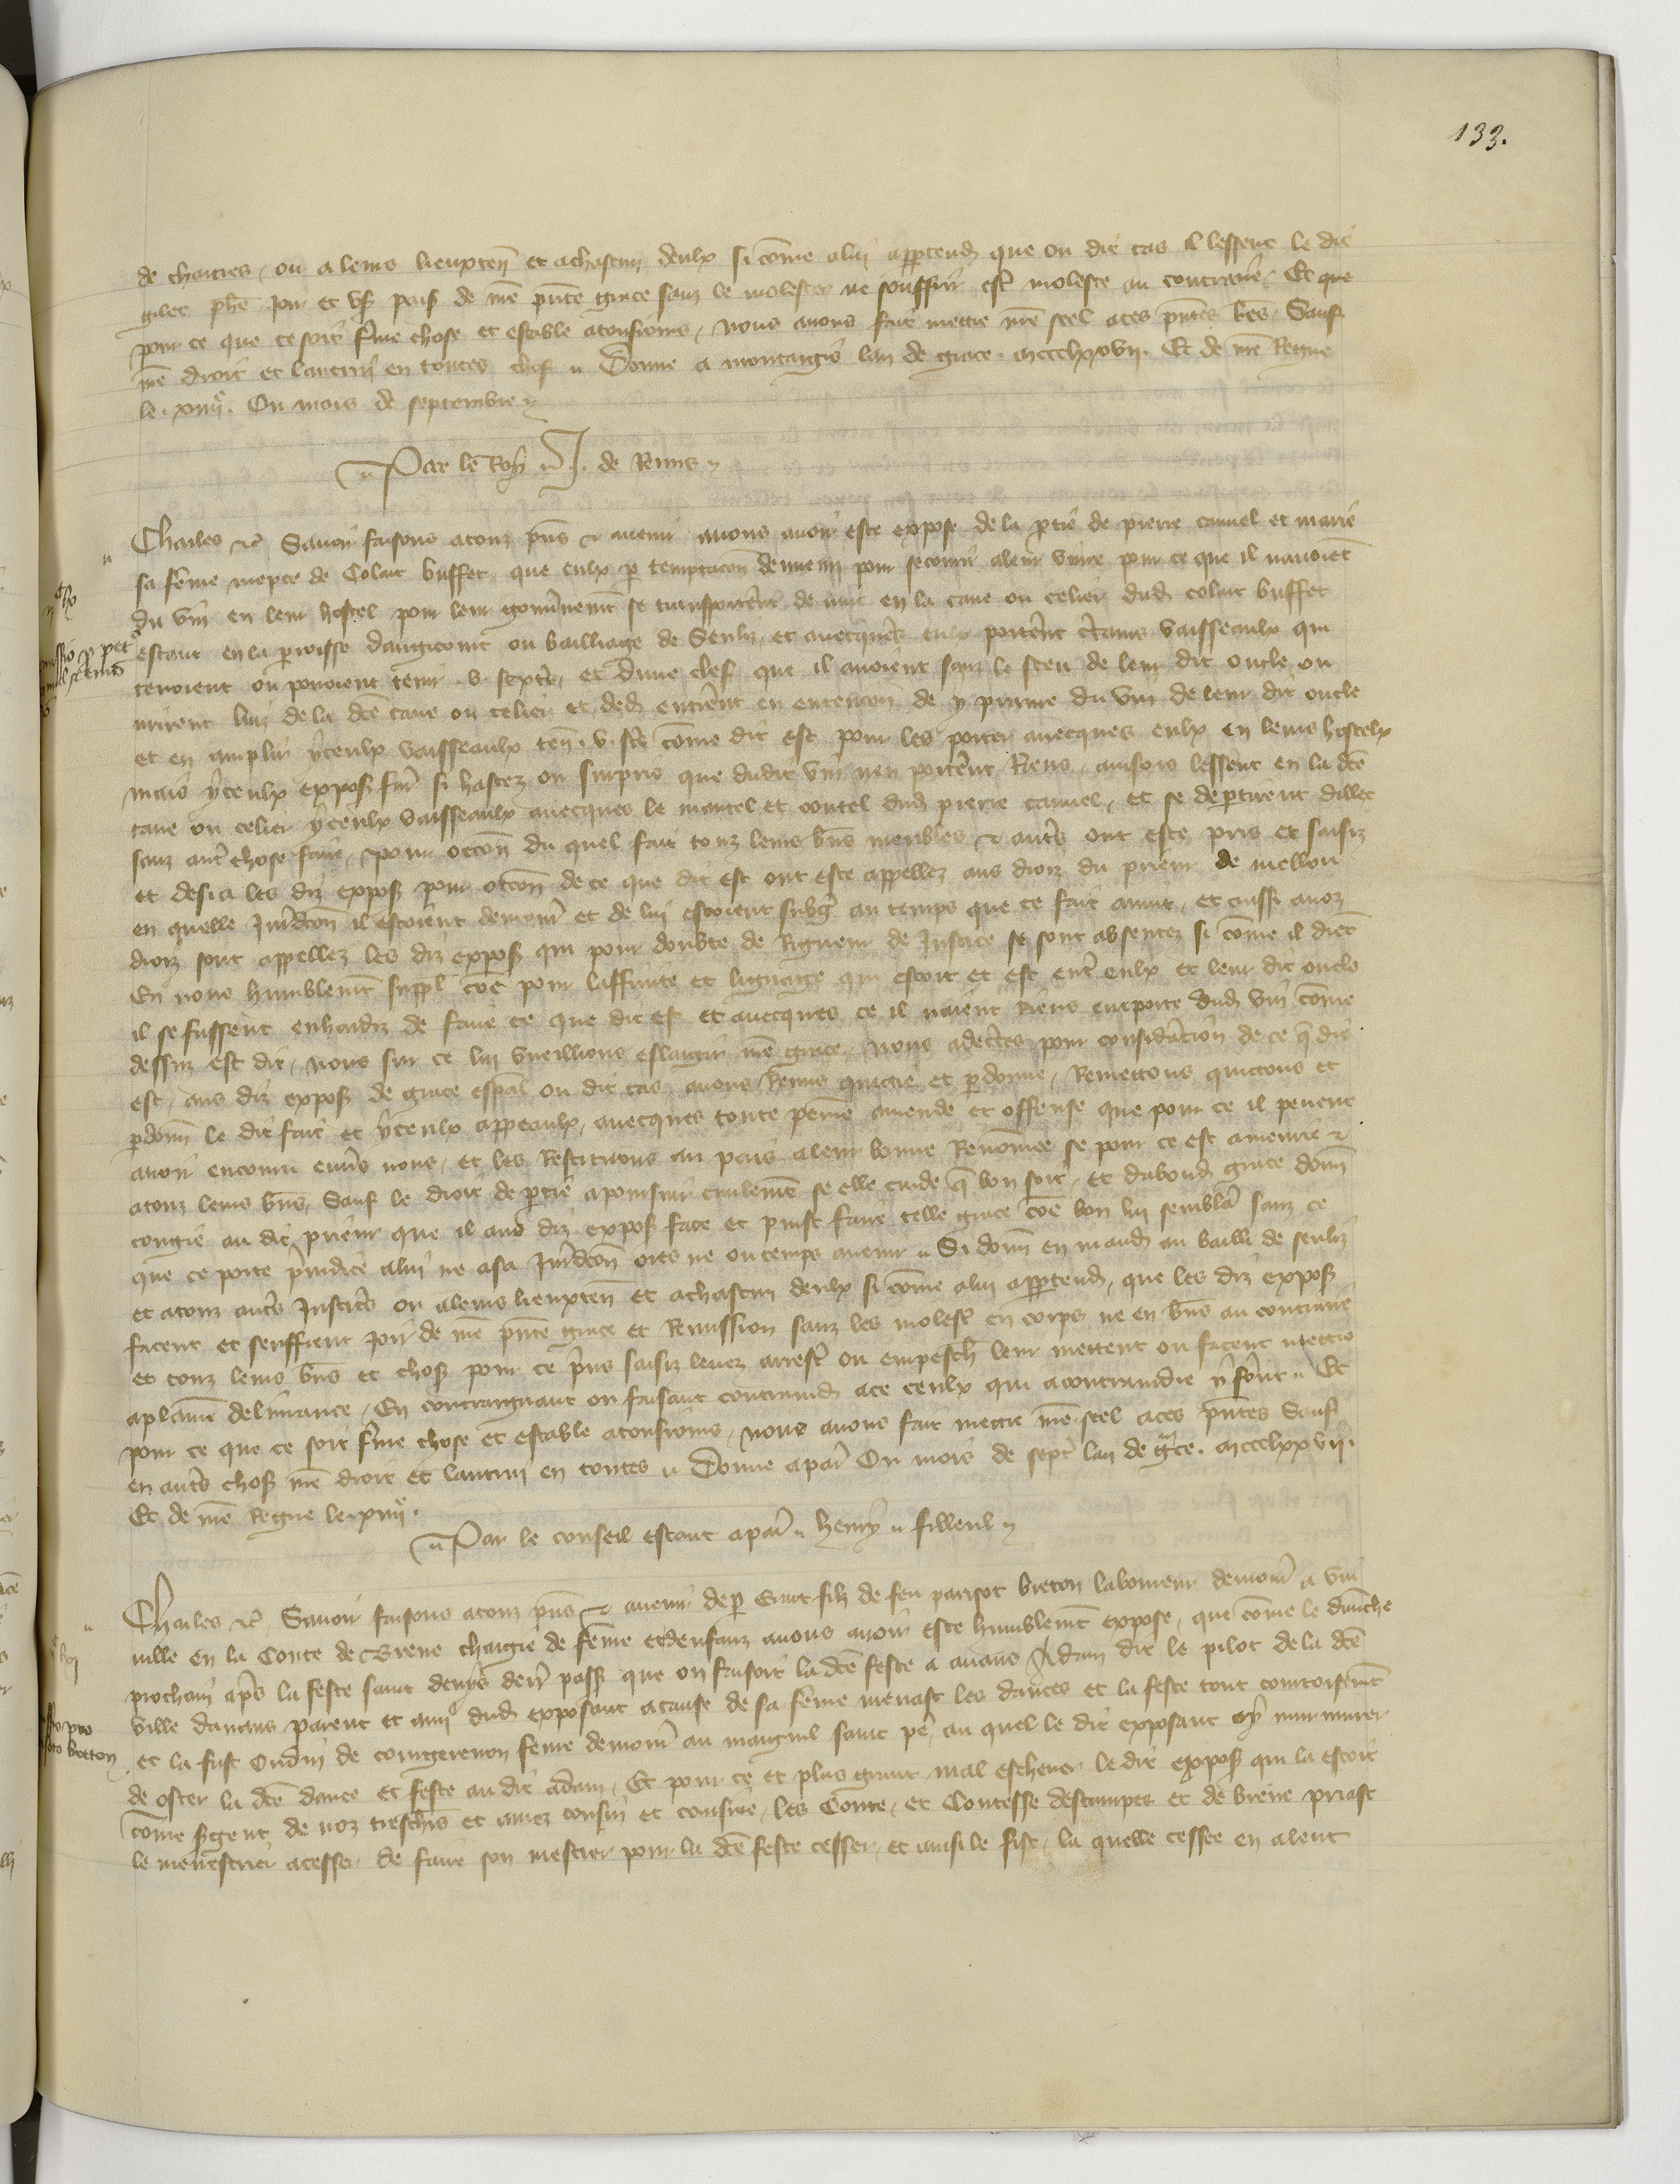 133.
de chartres, ou a leurs lieuxten̄ et achascun deulx si cōme alui appartend que ou dit cas il lessent le dit
gilet phē Joir et us̄ paisˉ de nr̄e pn̄te grace sanz le molester ne souffrir estr̄ moleste au contraire, Et que
pour ce que ce soit fer̄me chose et estable atousiours, nous auons fait mettre nr̄e seel aces pn̄tes lr̄es Sauf
nr̄e droit et lautrui en toutes chos̄ Donne a montargis lan de grace mccclxxvii. Et de nr̄e Regne
le .xiiiiᵉ. Ou mois de septembre
Par le Roy J. de Reims
Charles etc̄ Sauoir faisons atouz pn̄s et auenir nous auoir este expose de la p̄tie de pierre camel et marie
sa fēme niepce de Colart buffet, que eulx p̄ temptacōn dennemi pour secourir aleur viure pour ce que il nauoiēt
du vin en leur hostel pour leur gouu̓nemt̄ se transporter̄ent de nuit en la caue ou celier dud̄ colart buffet
estant en la p̄roisse daugicourt ou bailliage de Senliz, et auecques eulx porter̄ent c̓tains vaisseaulx qui
tenoient ou pouoient tenir .v. sextr̄s, et dune clef que il auoient sanz le sceu de leur dit oncle ou
urirent luis de la dc̄e caue ou celier et dedˉ entrer̄ent en entencōn de y prenre du vin de leur dit oncle
et en emplir yceulx vaisseaulx ten̄ .v. sextr̄s cōme dit est pour les porter auecques eulx en leurs hostelx
mais yceulx expos̄ fur̄ si hastez ou surpris que dudit vin nen porter̄ent Riens, aincois lesser̄ent en la dc̄e
caue ou celier yceulx vaisseaulx auecques le mantel et coutel dud̄ pierre camel, et se departirent dillec
sanz autr̄e chose faire, Pour occōn du quel fait touz leurs biēs meubles et autr̄s ont este pris et saisiz
et desia les diz expos̄ pour occōn de ce que dit est ont este appellez aus droiz du prieur de mellou
en quelle Jur̄idcōn il estoient demour̄ et de lui estoient subgˉ au temps que ce fait auint, et aussi a noz
droiz sont appellez les diz expos̄ qui pour doubte de Rigueur de Justice se sont absentez si cōme il diēt
En nous humblemt̄ suppl̄ cōe pour laffinite et lignage qui estoit et est entr̄e eulx et leur dit oncle
il se fussent enhardiz de faire ce que dit est et auecques ce il naient riens emporte dud̄ vin cōme
dessuz est dit, nous sur ce leur vueillions eslargir nr̄e grace, Nous adecer̄tes pour consider̄acion de ce q̄ dit
est, aus diz expos̄ de grace esp̄al ou dit cas auons Remis quictie et p̄donne, Remettons quictons et
p̄donn̄ le dit fait et yceulx appeaulx, auecques toute peine amende et offense que pour ce il peuent
auoir encouru enu̓s nous, et les Restituons au pais aleur bonne Renōmee se pour ce est amenrie et
atouz leurs biēs, Sauf le droit de p̄tie apoursuir ciuilemt̄ se elle cuide q̄ bon soit, Et dabond̄ grace donn̄
congie au dit prieur que il aus diz expos̄ face et puist faire telle grace cōe bon lui semblera sanz ce
que ce porte preiudice alui ne asa Jur̄idcōn ores ne ou temps auenir Si donn̄ en mand̄ au bailli de senliz
et atouz autr̄s Justic̄s ou aleurs lieuxten̄ et achascun deulx si cōme alui appartend̄, que les diz expos̄
facent et seuffrent Joir de nr̄e pn̄te grace et Remission sanz les molestr̄ en corps ne en biēs au contraire
et touz leurs biēs et chos̄ pour ce pris saisiz leuez arrestˉ ou empesch̄ leur mettent ou facent mettre
aplaine deliurance, En contraignant ou faisant contraind̄ ace ceulx qui acontraindre y ser̄ont Et
pour ce que ce soit fer̄me chose et estable atousiours, nous auons fait mettre nr̄e seel aces pn̄tes Sauf
en autr̄s chos̄ nr̄e droit et lautrui en toutes Donne a par̄ Ou mois de septr̄ lan de gr̄ce. mccclxxvii.
Et de nr̄e Regne le xiiiiᵉ.
Par le conseil estant a par̄ henry filleul
Charles etc̄ Sauoir faisons atouz pn̄s et auenir de p̄ filz de feu parisot breton laboureur demour̄ a vin
uille en la Conte de Brene chargie de fēme et denfanz nous auoir este humblemt̄ expose, que cōme le dimēche
prochain apr̄s la feste saint denys der̄r passˉ que on faisoit la dc̄e feste a auans Adam dit le pilot de la dc̄e
ville dauans parent et ami dud̄ exposant acause de sa fēme menast les dances et la feste tout courtoisemt̄
et la fust Oudin de coingerenon fēme demour̄ au maignil saint pe᷒, au quel le dit exposant oy murmurer
de oster la dc̄e dance et feste au dit adam, Et pour ce et plus grant mal escheuer le dit expos̄ qui la estoit
cōme ser̄gent de noz treschr̄s et amez cousin et cousine, les Conte et Contesse destampes et de brene priast
le menestrier acesser de faire son mestier pour la dc̄e feste cesser, et ainsi le fist, la quelle cessee en alent